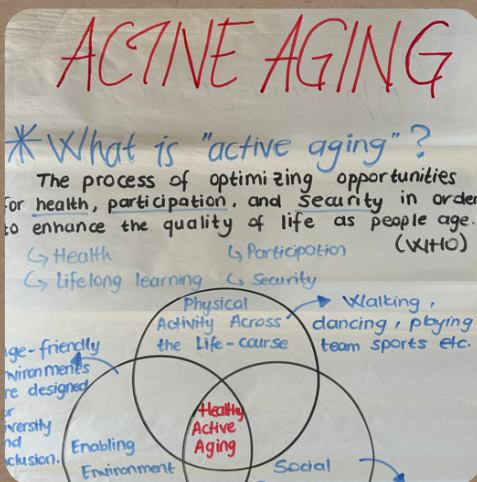 ACTIVE AGING
* What is "active aging"?
The process of optimizing opportunities
for health, participation, and security in order
to enhance the quality of life as people age.
(WHO)
↳ Health
↳ Participation
↳ Lifelong learning
↳ Security
Physical
Activity Across
the Life-course
Walking,
dancing, playing
team sports etc.
ge-friendly
vironments
re designed
or
versity
nd
clusion.
Healthy
Active
Aging
Enabling
Environment
Social